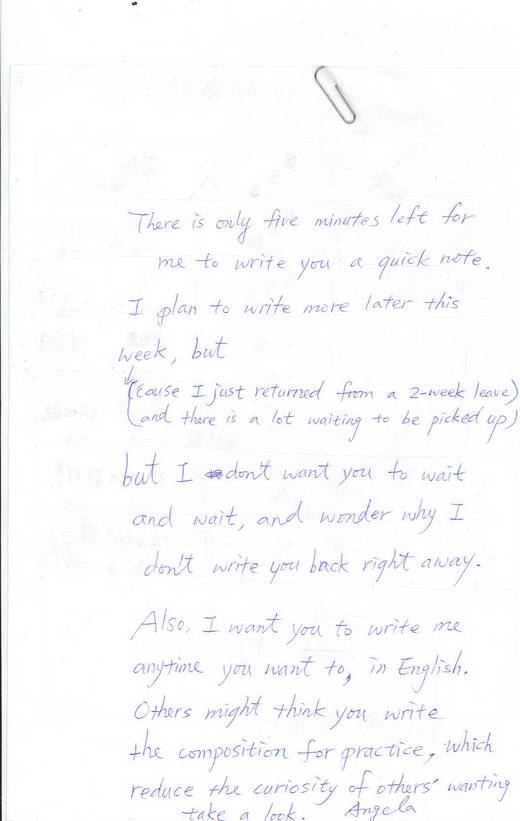 There is only five minutes left for
me to write you a quick note.
I plan to write more later this
week, but
(cause I just returned from a 2-week leave)
(and there is a lot waiting to be picked up)
but I don't want you to wait
and wait, and wonder why I
don't write you back right away.
Also, I want you to write me
anytime you want to, in English.
Others might think you write
the composition for practice, which
reduce the curiosity of others' wanting
take a look. Angela